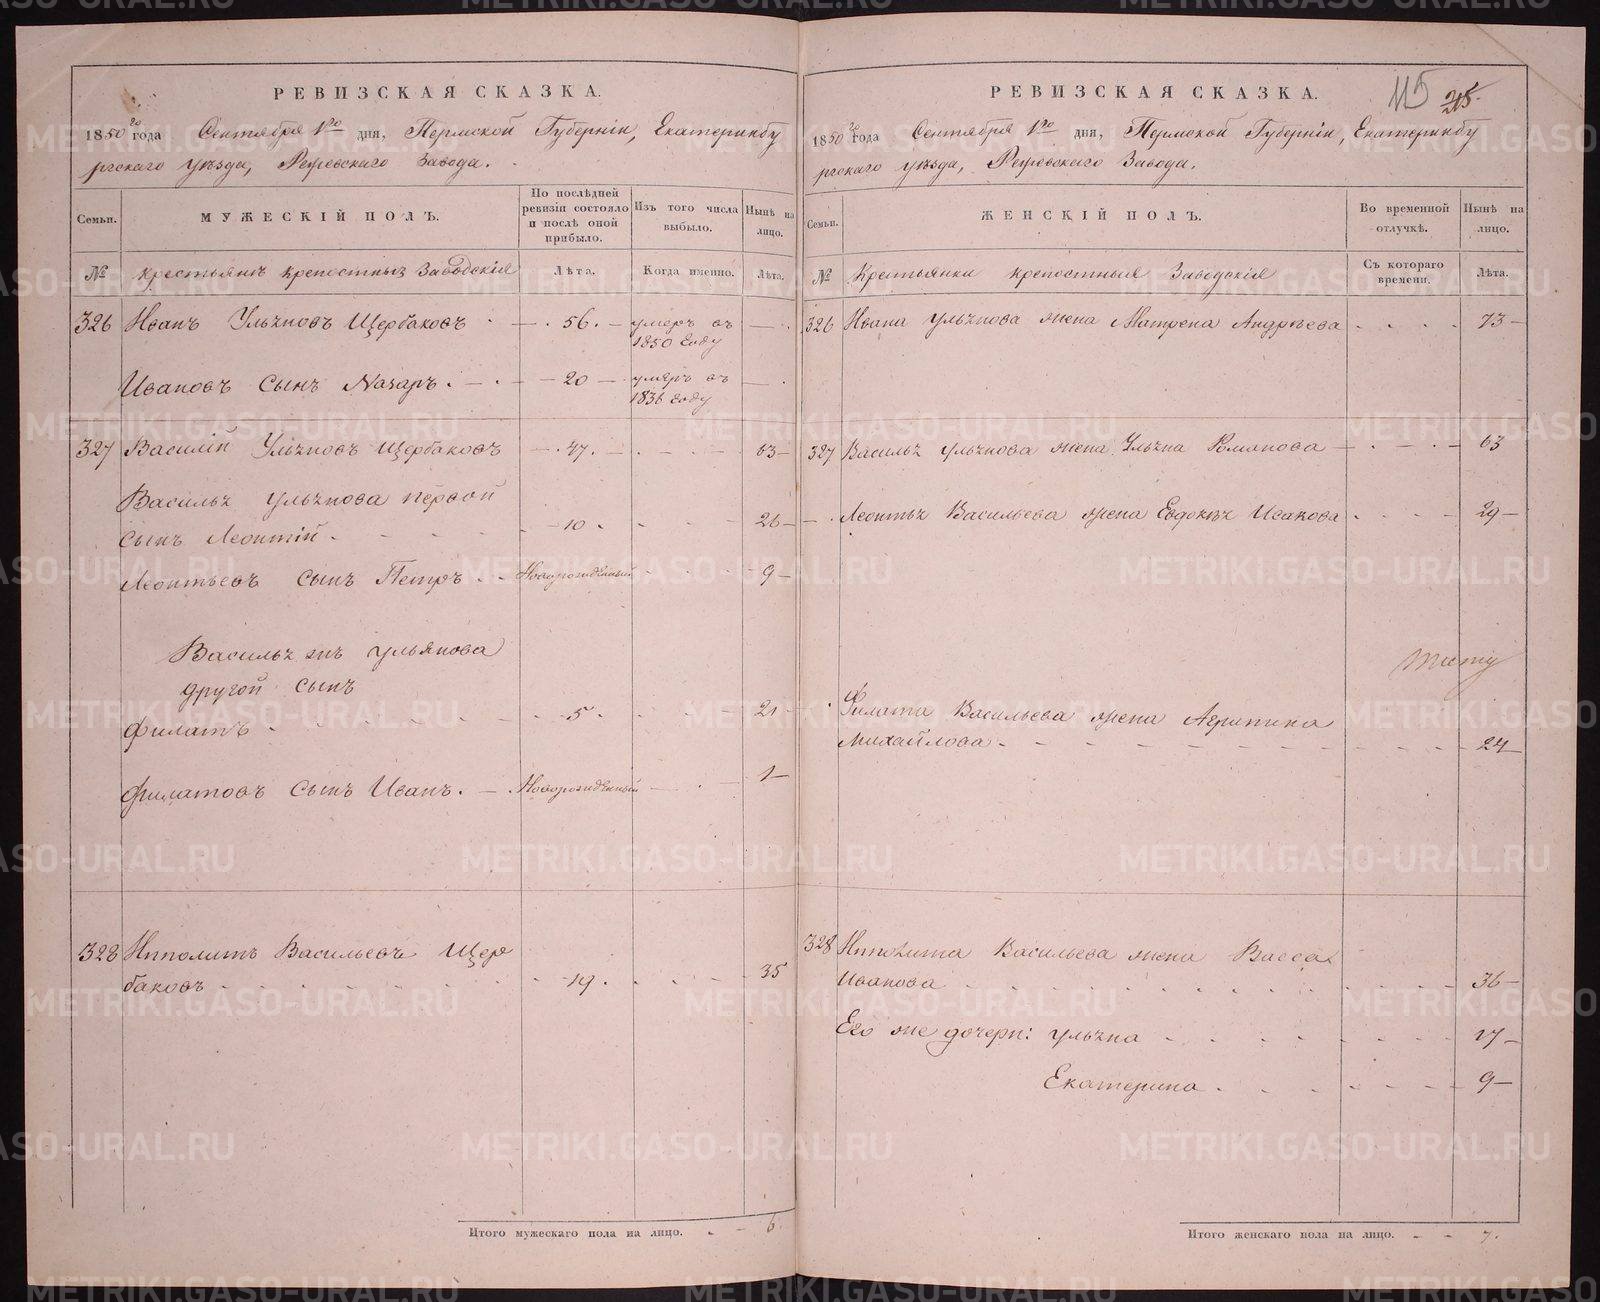 РЕВИЗСКАЯ СКАЗКА.
1850 го года Сентября 1го дня, Пермской Губерніи, Екатеринбу
ргскаго уѣзда, Режевскаго Завода.
Семьи.
МУЖЕСКІЙ ПОЛЪ.
По послѣдней ревизіи состояло и послѣ оной прибыло.
Изъ того числа выбыло.
Нынѣ на лицо.
№
крестьянъ крепостныхъ Заводскія
Лѣта.
Когда именно.
Лѣта.
326 Иванъ Ульяновъ Щербаковъ 56. умеръ въ
1850 году
Ивановъ сынъ Назаръ. 20 умеръ въ
1836 году
327 Василій Ульяновъ Щербаковъ 47. 63
Василья Ульянова первой
сынъ Леонтій 10 26
Леонтьевъ сынъ Петръ Новорожденный 9
Василья жъ Ульянова
другой сынъ
Филатъ 5 21
Филатовъ сынъ Иванъ. Новорожденный 1
328 Ипполитъ Васильевъ Щер
баковъ 19. 35
Итого мужескаго пола на лицо. 6.
115 215.
РЕВИЗСКАЯ СКАЗКА.
1850 го года Сентября 1го дня, Пермской Губерніи, Екатеринбу
ргскаго уѣзда, Режевскаго Завода.
Семьи.
ЖЕНСКІЙ ПОЛЪ.
Во временной отлучкѣ.
Нынѣ на лицо.
№
Крестьянки крепостныя Заводскія
Съ котораго времени.
Лѣта.
326 Ивана Ульянова жена Матрена Андрѣева 73
327 Василья Ульянова жена Ульяна Романова 63
Леонтья Васильева жена Евдокея Исакова 29
Филата Васильева жена Агрипина
Михайлова 24
328 Ипполита Васильева жена Васса
Иванова 36
Его же дочери: Ульяна 17
Екатерина 9
Итого женскаго пола на лицо. 7.
METRIKI.GASO-URAL.RU